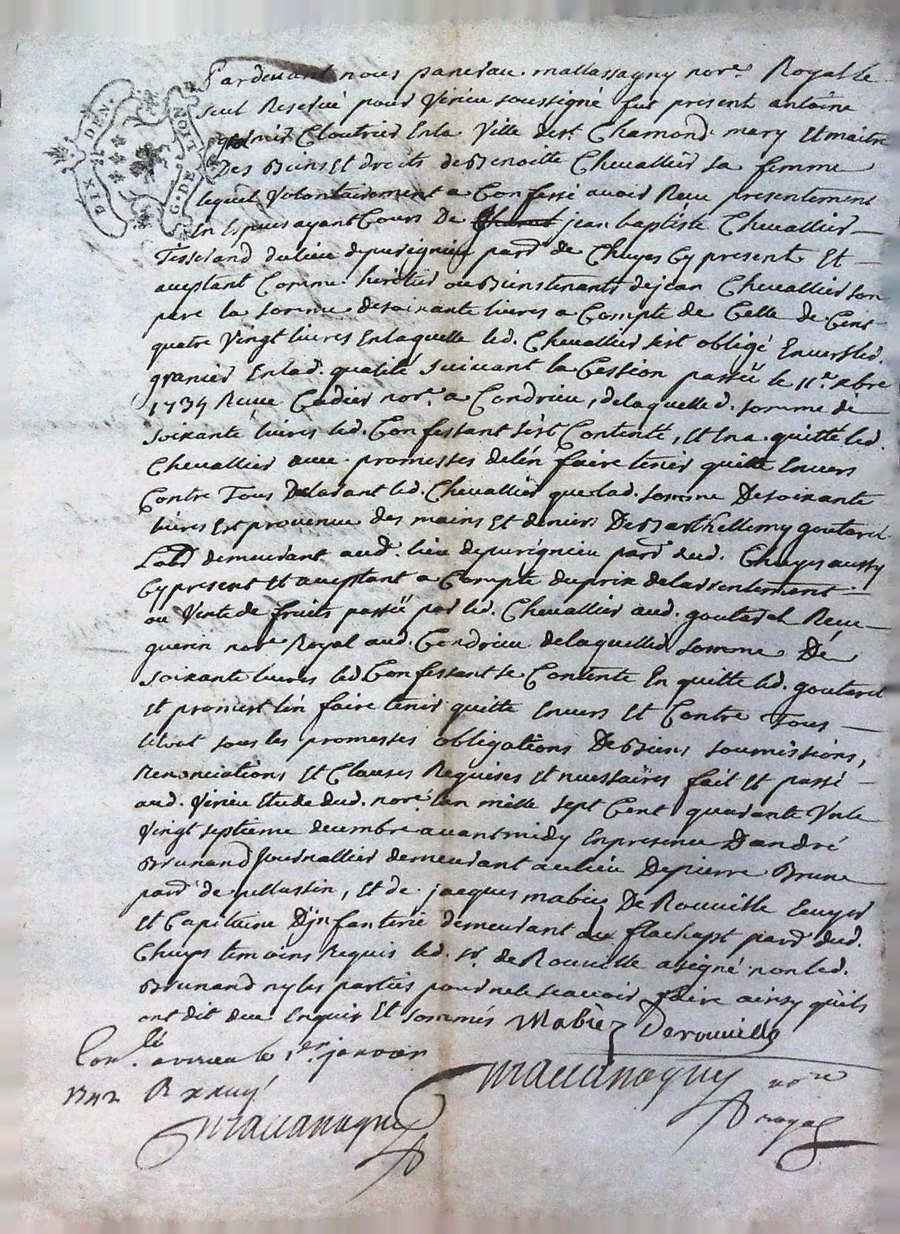 DIX DEN.
G. DE LION
Pardevant nous pancrau mallassagny nore. Royal le
seul Reservé pour Virieu soussigné fut present antoine
granier Cloutrier En la Ville de st. Chamond. mary Et maitre
Des Biens Et droits de Benoitte Chevallier sa femme
lequel Volontairement a Confessé avoir Receu presentement
En Espèces ayant Cours De jean baptiste Chevallier
Tisserand du lieu de purignieu parr. de Chuyes Cy present Et
aceptant Comme heritier ou Bienstenant de jean Chevallier son
pere la somme de soixante livres a Compte de Celle de Cent
quatre Vingt livres En laquelle led. Chevallier s'est obligé Envers led.
granier En lad. qualité suivant la Cession passée le 11e. xbre
1734 Reçue Cadier nore. a Condrieu, de laquelle d. somme de
soixante livres led. Confessant s'est Contenté, Et En a quitté led.
Chevallier avec promesses de l'en faire tenir quitte Envers
Contre Tous Declarant led. Chevallier que lad. somme De soixante
livres Est provenue des mains Et deniers De Barthellemy goutarel
Lad demeurant aud. lieu de purignieu parr. dud. Chuyes aussy
Cy present Et aceptant a Compte du prix de l'assentement
ou Vente de fruits passée par led. Chevallier aud. goutarel Reçue
guerin nore Royal aud. Condrieu de laquelle d. somme De
soixante livres led Confessant se Contente En quitte led. goutarel
Et promest l'en faire tenir quitte Envers Et Contre Tous
le tout sous les promesses obligations De Biens soumissions,
Renonciations Et Clauses Requises Et necessaires fait Et passé
aud. Virieu Etude dud. nore. l'an mille sept Cent quarante Un le
Vingt septieme decembre avant midy En presence D'andré
Brunand Journallier demeurant au lieu De pierre Brune
parr. de pellussin, Et de jacques mabiez De Rouville Ecuyer
Et Capitaine D'jnfanterie demeurant au flachapt parr. dud.
Chuyes temoins Requis led. sr. de Rouville a signé non led.
Brunand ny les parties pour ne le sçavoir faire ainsy qu'ils
ont dit due Enquis Et sommés Mabiez Derouville
Conlé. a virieu le 1er janvier
1742 R
mallassagny nore
royal
mallassagny